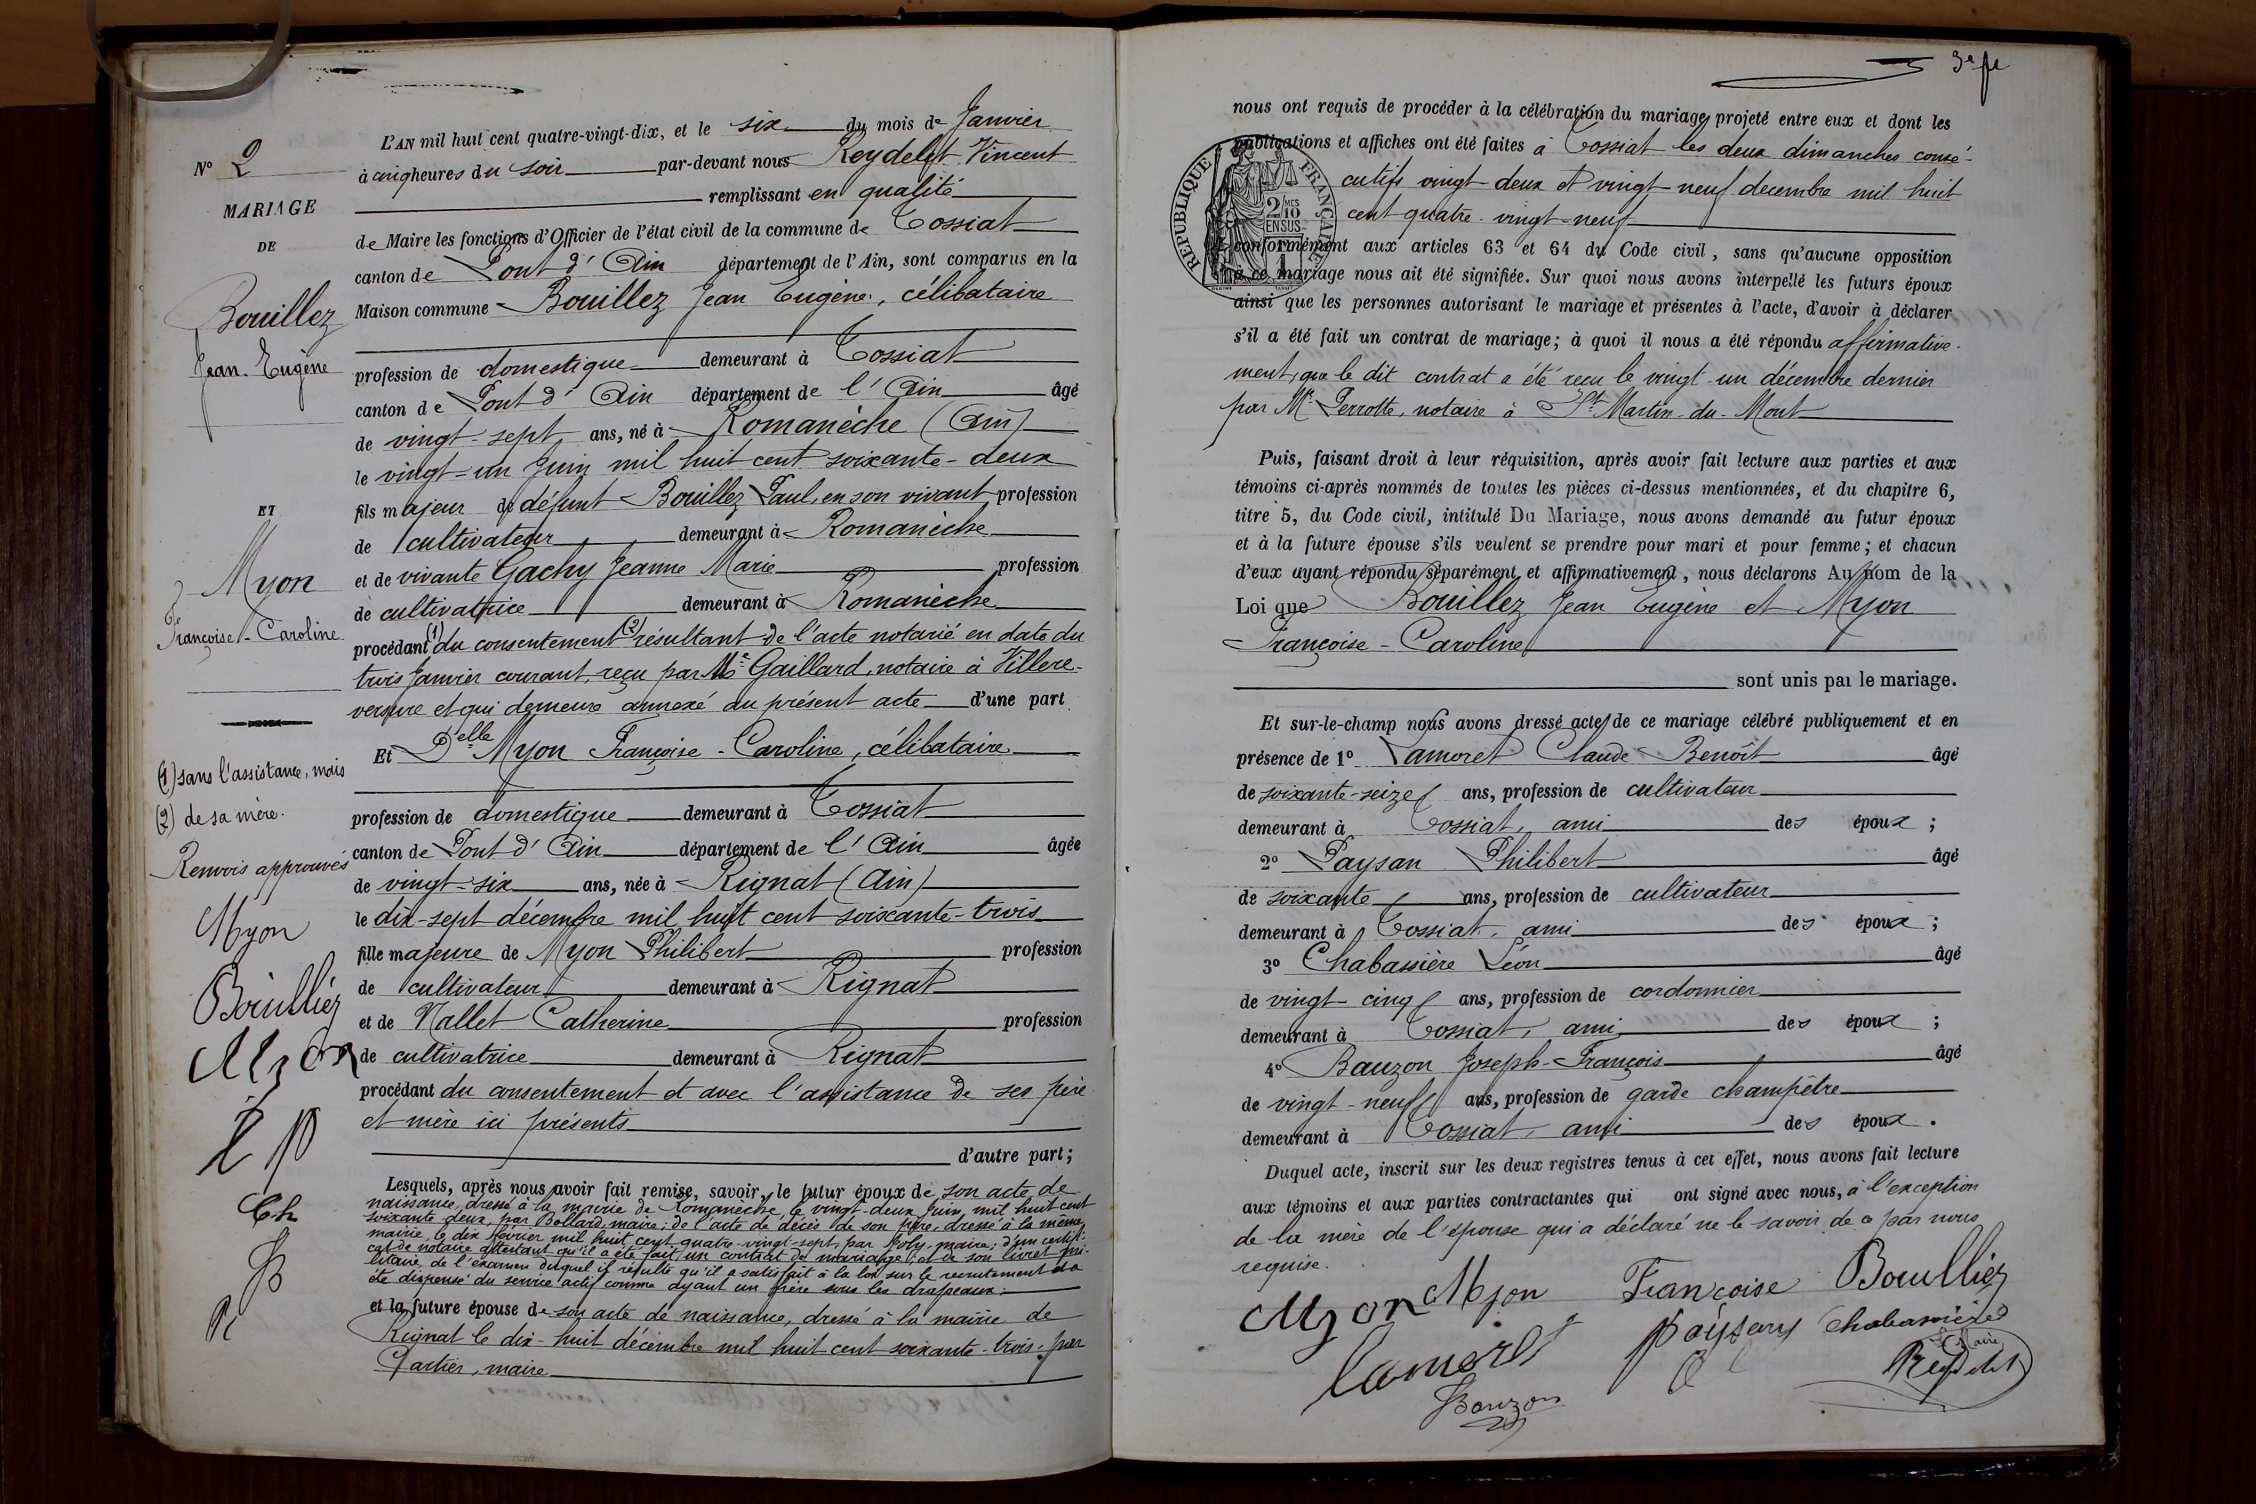 N° 2
MARIAGE
DE
Bouillez
Jean-Eugène
ET
Myon
Françoise-Caroline
(1) sans l'assistance, mais
(2) de sa mère.
Renvois approuvés
Myon
Bouilliez
Myon
Ch
L'AN mil huit cent quatre-vingt-dix, et le six du mois de Janvier
à cinq heures du soir par-devant nous Reydelet Vincent
remplissant en qualité
de Maire les fonctions d'Officier de l'état civil de la commune de Tossiat
canton de Pont d'Ain département de l'Ain, sont comparus en la
Maison commune Bouillez Jean Eugène, célibataire
profession de domestique demeurant à Tossiat
canton de Pont d'Ain département de l'Ain âgé
de vingt-sept ans, né à Romanèche (Ain)
le vingt-un Juin mil huit cent soixante-deux
fils majeur de défunt Bouillez Paul, en son vivant profession
de cultivateur demeurant à Romanèche
et de vivante Gachy Jeanne Marie profession
de cultivatrice demeurant à Romanèche
procédant (1) du consentement (2) résultant de l'acte notarié en date du
trois Janvier courant, reçu par Me Gaillard, notaire à Villere-
versure et qui demeure annexé au présent acte d'une part
Et Delle Myon Françoise-Caroline, célibataire
profession de domestique demeurant à Tossiat
canton de Pont d'Ain département de l'Ain âgée
de vingt-six ans, née à Rignat (Ain)
le dix-sept décembre mil huit cent soixante-trois
fille majeure de Myon Philibert profession
de cultivateur demeurant à Rignat
et de Nallet Catherine profession
de cultivatrice demeurant à Rignat
procédant du consentement et avec l'assistance de ses père
et mère ici présents
d'autre part;
Lesquels, après nous avoir fait remise, savoir, le futur époux de son acte de
naissance, dressé à la mairie de Romanèche, le vingt-deux Juin, mil huit cent
soixante deux, par Bollard, maire; de l'acte de décès de son père dressé à la même
mairie, le dix février mil huit cent quatre-vingt-sept, par Joly, maire; d'un certifi-
cat de notaire attestant qu'il a été fait un contrat de mariage; et de son livret mi-
litaire, de l'examen duquel il résulte qu'il a satisfait à la loi sur le recrutement et a
été dispensé du service actif comme ayant un frère sous les drapeaux;
et la future épouse de son acte de naissance, dressé à la mairie de
Rignat le dix-huit décembre mil huit cent soixante-trois, par
maire
3e
nous ont requis de procéder à la célébration du mariage projeté entre eux et dont les
publications et affiches ont été faites à Tossiat les deux dimanches consé-
cutifs vingt-deux et vingt-neuf décembre mil huit
cent quatre-vingt-neuf
RÉPUBLIQUE FRANÇAISE
2/10 MES EN SUS
conformément aux articles 63 et 64 du Code civil, sans qu'aucune opposition
à ce mariage nous ait été signifiée. Sur quoi nous avons interpellé les futurs époux
ainsi que les personnes autorisant le mariage et présentes à l'acte, d'avoir à déclarer
s'il a été fait un contrat de mariage; à quoi il nous a été répondu affirmative-
ment, que le dit contrat a été reçu le vingt-un décembre dernier
par Me Perrotte, notaire à St Martin-du-Mont
Puis, faisant droit à leur réquisition, après avoir fait lecture aux parties et aux
témoins ci-après nommés de toutes les pièces ci-dessus mentionnées, et du chapitre 6,
titre 5, du Code civil, intitulé Du Mariage, nous avons demandé au futur époux
et à la future épouse s'ils veulent se prendre pour mari et pour femme; et chacun
d'eux ayant répondu séparément et affirmativement, nous déclarons Au nom de la
Loi que Bouillez Jean Eugène et Myon
Françoise-Caroline
sont unis par le mariage.
Et sur-le-champ nous avons dressé acte de ce mariage célébré publiquement et en
présence de 1° Lamoret Claude-Benoit âgé
de soixante-seize ans, profession de cultivateur
demeurant à Tossiat, ami des époux;
2° Paysan Philibert âgé
de soixante ans, profession de cultivateur
demeurant à Tossiat, ami des époux;
3° Chabassière Léon âgé
de vingt-cinq ans, profession de cordonnier
demeurant à Tossiat, ami des époux;
4° Bauzon Joseph-François âgé
de vingt-neuf ans, profession de garde champêtre
demeurant à Tossiat, ami des époux.
Duquel acte, inscrit sur les deux registres tenus à cet effet, nous avons fait lecture
aux témoins et aux parties contractantes qui ont signé avec nous, à l'exception
de la mère de l'épouse qui a déclaré ne le savoir de ce par nous
requise.
Myon Myon Françoise Bouilliez
Lamoret Paysan Chabassière
Bauzon Le Maire
Reydelet